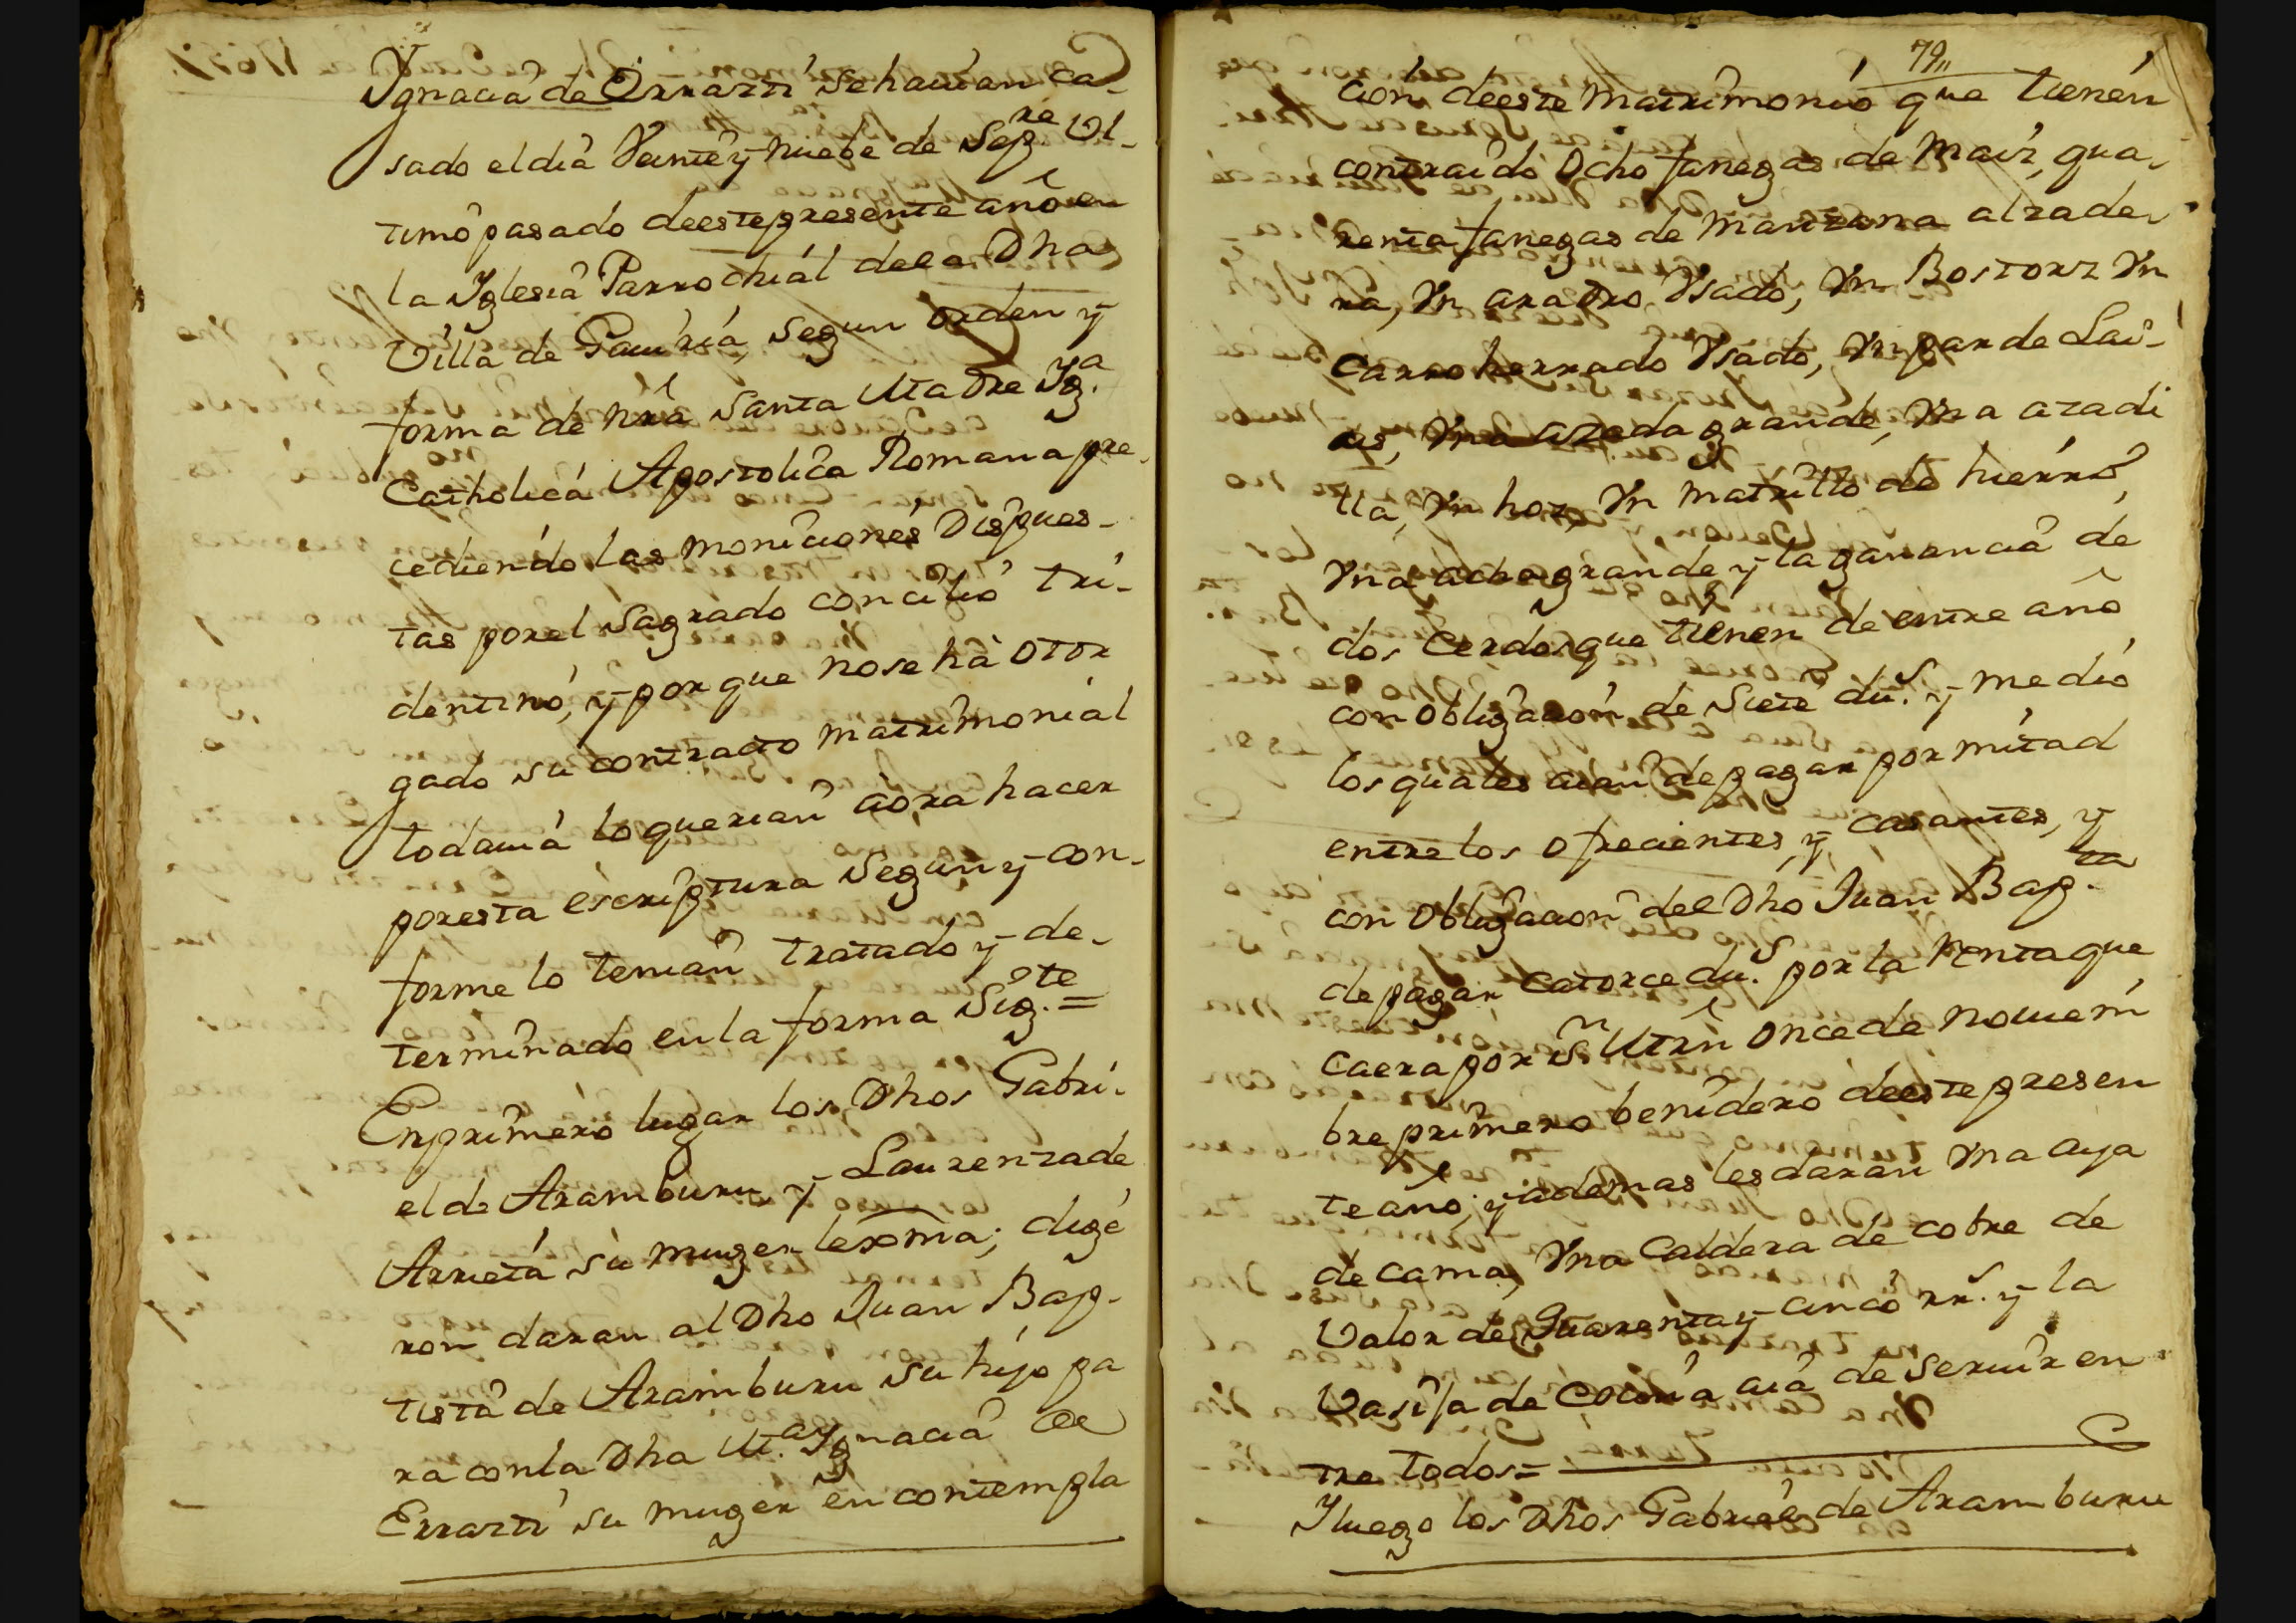 Ygnacia de Errazti se hauian ca-
sado el dia Veinte y nuebe de Sep.re Ul-
timo pasado de este presente año en
la Yglesia Parrochial de la Dha
Villa de Gauiria, segun orden y
forma de nrã Santa Madre Yg.a
Catholica Apostolica Romana pre-
cediendo las moniciones Dispues-
tas por el Sagrado concilio tri-
dentino, y por que no se hà otor
gado su contracto matrimonial
todauia lo querian aora hacer
por esta escriptura segun y con-
forme lo tenian tratado y de-
terminado en la forma Sig.te =
En primero lugar los Dhos Gabri-
el de Aramburu y Laurenza de
Arrieta su muger lexma; dige
ron daran al Dho Juan Bap-
tista de Aramburu su hijo pa
ra con la Dha M.a Ygnacia de
Errazti su muger en contempla
79,,
cion de este matrimonio que tienen
contraido Ocho fanegas de Maiz, qua-
renta fanegas de Manzana alzade-
ra, Yn aradro Ysado, Yn Bostorz Yn
Carro herrado Ysado, Yn par de Lai-
as, Yna azada grande, Yna azadi
lla, Yn hoz, Yn matillo de hierro,
Yna acha grande y la ganancia de
dos Cerdos que tienen de entre año
con obligacion de Siete du.s y medio
los quales aian de pagar por mitad
entre los ofrecientes, y casantes, y
con obligacion del Dho Juan Bap.ta
de pagar catorce du.s por la Renta que
caera por Sn Mrñ Once de Nouiem
bre primero benidero de este presen
te año; y ademas les daran Yna auja
de cama, Yna Caldera de cobre de
Valor de Quarenta y cinco rr.s y la
Vasija de Cocina aia de seruir en
tre todos =
Y luego los Dhos Gabriel de Aramburu